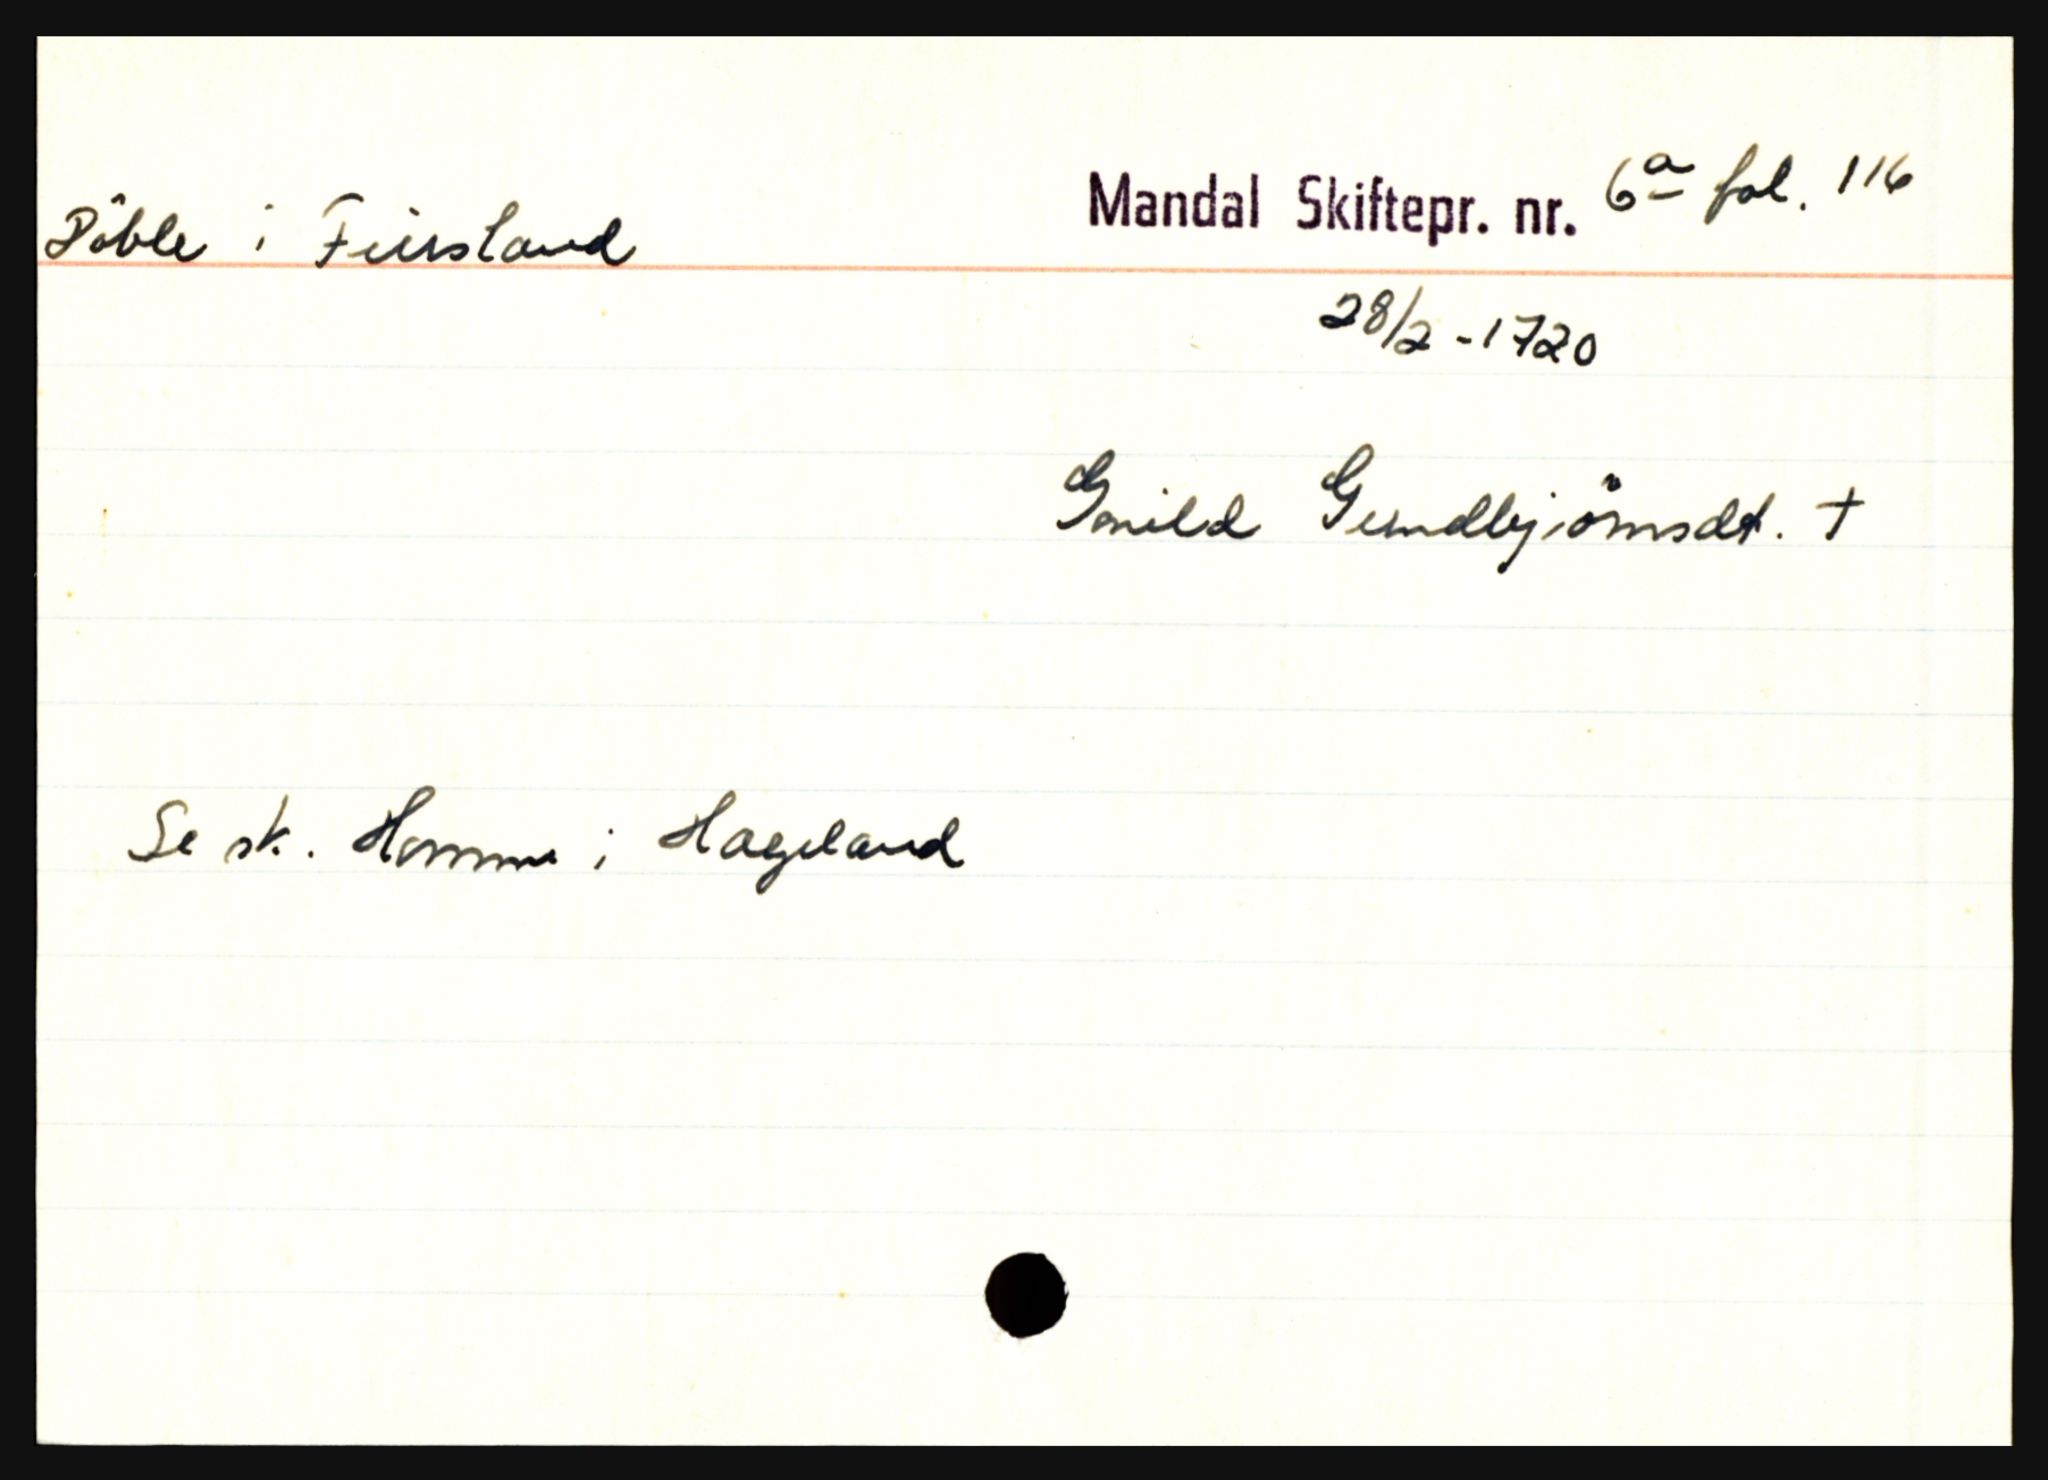 Döble i Finsland
Mandal Skiftepr. nr. 6a fol. 116
28/2 - 1720
Gunild Gundbjörnsdt. +
Se sk. Homme i Hægeland